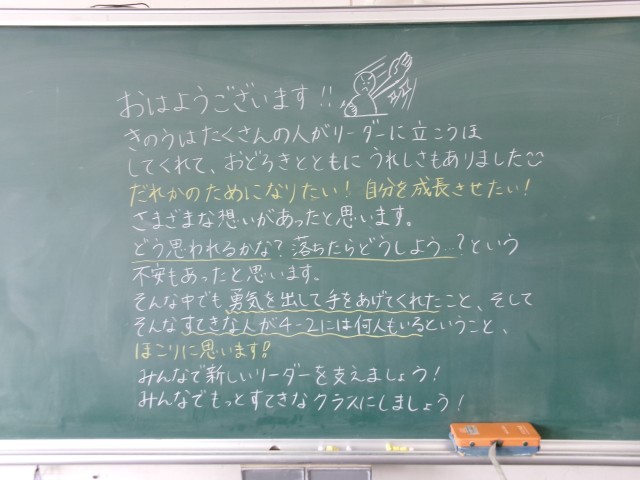 おはようございます!!
きのうはたくさんの人がリーダーに立こうほ
してくれて、おどろきとともにうれしさもありました
だれかのためになりたい!自分を成長させたい!
さまざまな想いがあったと思います。
どう思われるかな?落ちたらどうしよう…?という
不安もあったと思います。
そんな中でも勇気を出して手をあげてくれたこと、そして
そんなすてきな人が4-2には何人もいるということ、
ほこりに思います!!
みんなで新しいリーダーを支えましょう!
みんなでもっとすてきなクラスにしましょう!